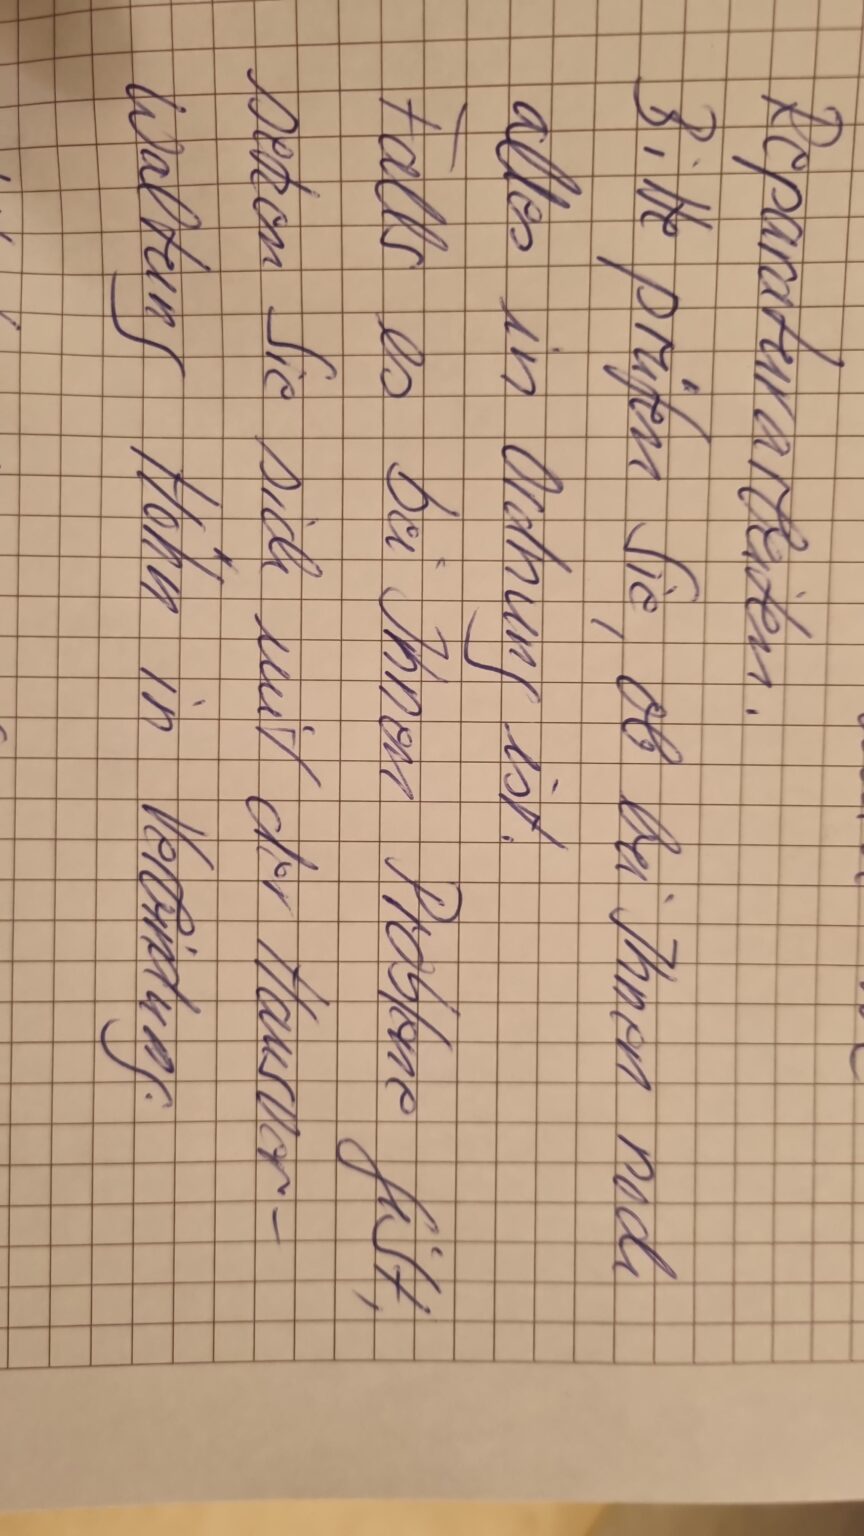 Reparaturarbeiten.
Bitte prüfen Sie, ob bei Ihnen noch
alles in Ordnung ist.
Falls es bei Ihnen Probleme gibt,
setzen Sie sich mit der Hausver-
waltung Höhn in Verbindung.